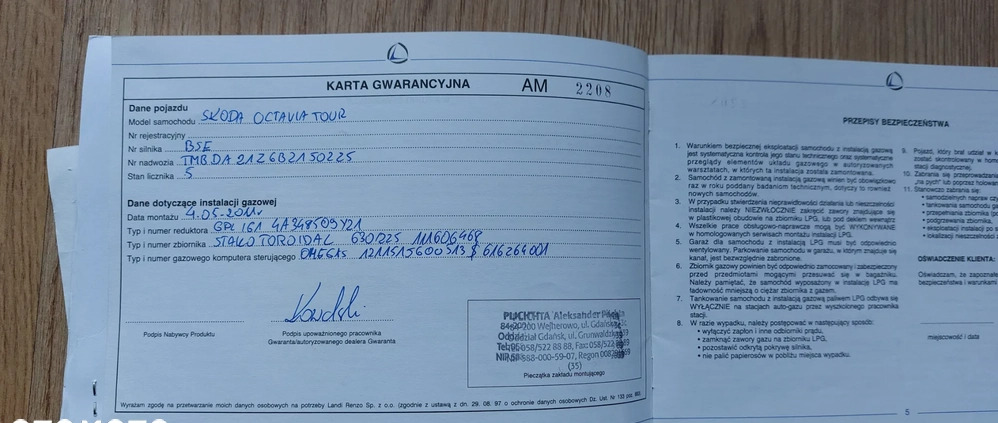 KARTA GWARANCYJNA AM 2208
Dane pojazdu
Model samochodu SKODA OCTAVIA TOUR
Nr rejestracyjny
Nr silnika BSE
Nr nadwozia TMBDA21Z6B2150225
Stan licznika 5
Dane dotyczące instalacji gazowej
Data montażu 4.05.2011r
Typ i numer reduktora
Typ i numer zbiornika STAKO TOROIDAL 630/225
Typ i numer gazowego komputera sterującego
Podpis Nabywcy Produktu
Podpis upoważnionego pracownika
Gwaranta/autoryzowanego dealera Gwaranta
PLICHTA Aleksander
84-200 Wejherowo, ul. Gdańska
Oddział Gdańsk, ul. Grunwaldzka
(35)
Pieczątka zakładu montującego
Wyrażam zgodę na przetwarzanie moich danych osobowych na potrzeby Landi Renzo Sp. z o.o. (zgodnie z ustawą z dn. 29. 08. 97 o ochronie danych osobowych Dz. Ust. Nr 133 poz. 883.
PRZEPISY BEZPIECZEŃSTWA
1. Warunkiem bezpiecznej eksploatacji samochodu z instalacją gazową
jest systematyczna kontrola jego stanu technicznego oraz systematyczne
przeglądy elementów układu gazowego w autoryzowanych
warsztatach, w których ta instalacja została zamontowana.
2. Samochód z zamontowaną instalacją gazową winien być obowiązkowo
raz w roku poddany badaniom technicznym, dotyczy to również
nowych samochodów.
3. W przypadku stwierdzenia nieprawidłowości działania lub nieszczelności
instalacji należy NIEZWŁOCZNIE zakręcić zawory znajdujące się
w plastikowej obudowie na zbiorniku LPG, lub pod deklem wewnątrz
4. Wszelkie prace obsługowo-naprawcze mogą być WYKONYWANE
w homologowanych serwisach montażu instalacji LPG.
5. Garaż dla samochodu z instalacją LPG musi być odpowiednio
wentylowany. Parkowanie samochodu w garażu, w którym znajduje się
kanał, jest bezwzględnie zabronione.
6. Zbiornik gazowy powinien być odpowiednio zamocowany i zabezpieczony
przed przedmiotami mogącymi przesuwać się w bagażniku.
Należy pamiętać, że samochód wyposażony w instalację LPG ma
ładowność mniejszą o ciężar zbiornika z gazem.
7. Tankowanie samochodu z instalacją gazową paliwem LPG odbywa się
WYŁĄCZNIE na stacjach auto-gazu przez wyszkolonego pracownika
stacji.
8. W razie wypadku, należy postępować w następujący sposób:
• wyłączyć zapłon i inne odbiorniki prądu,
• zamknąć zawory gazu na zbiorniku LPG,
• pozostawić odkrytą pokrywę silnika,
• nie palić papierosów w pobliżu miejsca wypadku.
9. Pojazd, który brał udział w
zostać skontrolowany w
stacji diagnostycznej.
10. Zabrania się przeprowadzania
„na pych" lub poprzez
11. Stanowczo zabrania się:
• samodzielnych napraw
• tankowania samochodu
• przepełniania zbiornika
• podgrzewania zbiornika,
• eksploatacji instalacji po
• lokalizacji nieszczelności
OŚWIADCZENIE KLIENTA:
Oświadczam, że zapoznałem
bezpieczeństwa i warunkami
miejscowość i data
5